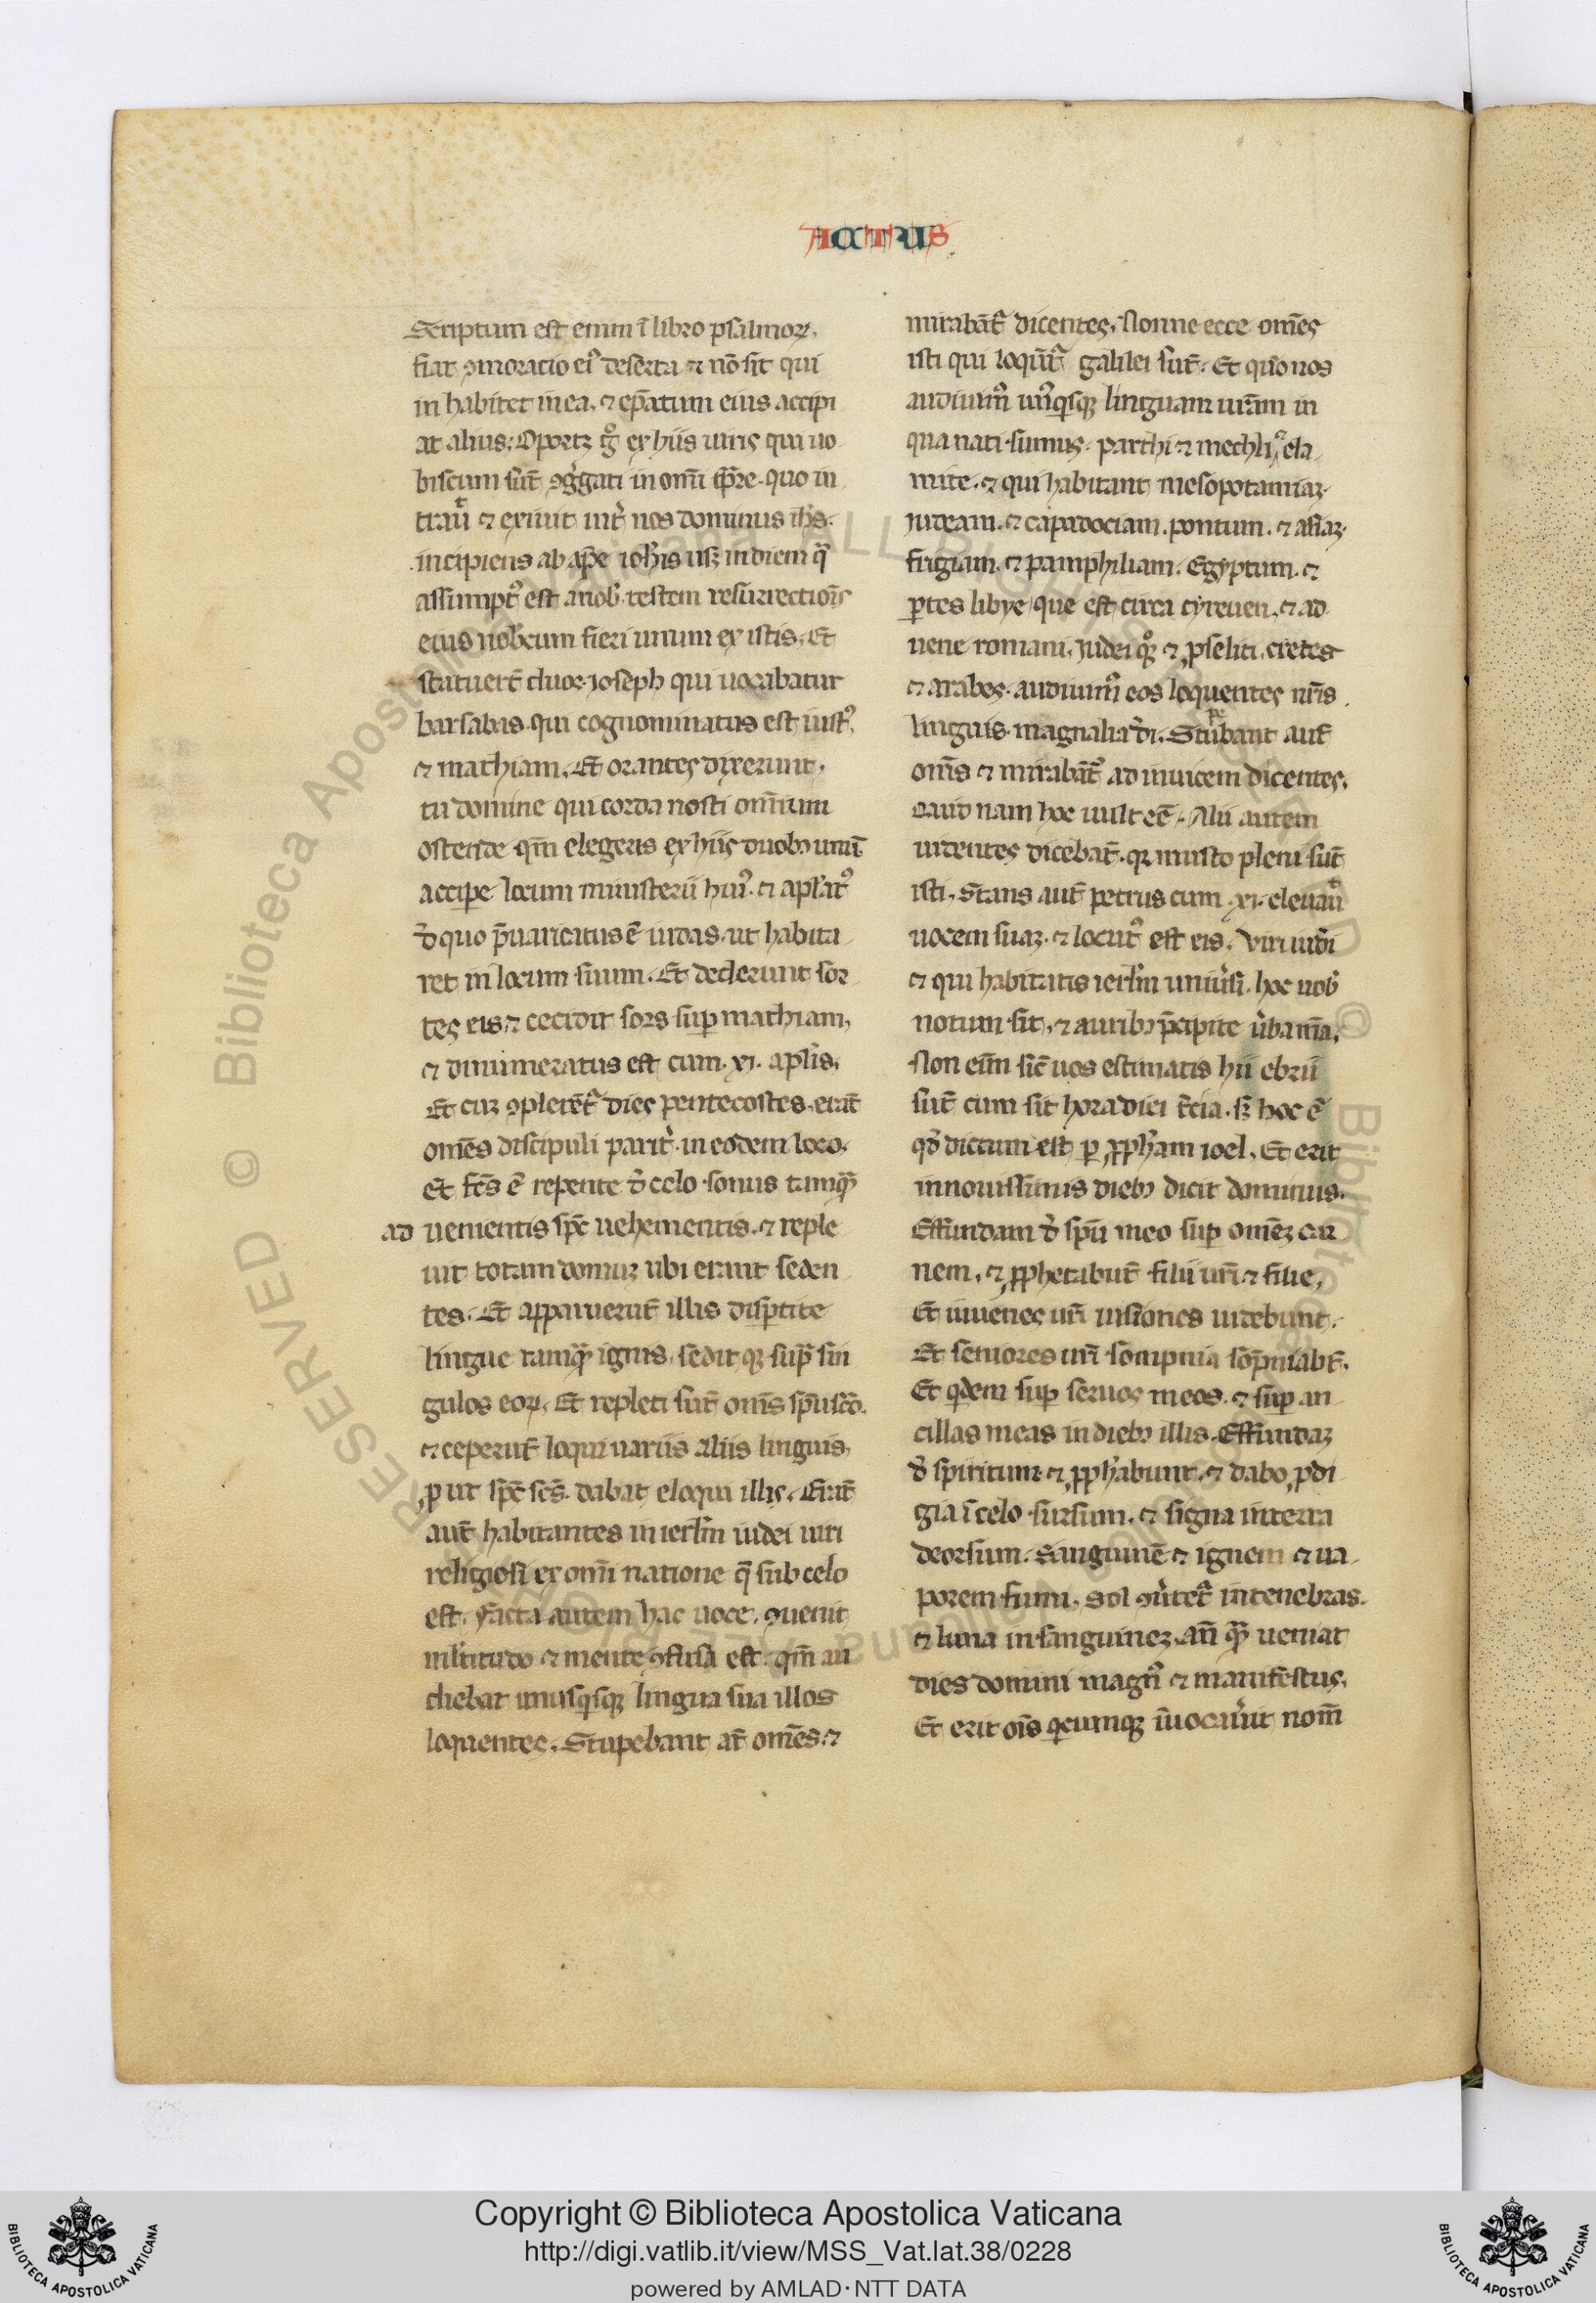 ACTUS
Scriptum est enim ĩ libro psalmoꝝ.
fiat ꝯmoratio eiꝰ deserta ⁊ nō sit qui
in habitet in ea. ⁊ ep̄atum eius accipi
at alius. Oportꝫ gͦ ex hiis uiris qui uo
biscum sūt ꝯg̾gati in om̄i tp̄re. quo in
trauͭ ⁊ exiuit int̾ nos dominus ih̄s.
incipiens ab ap̄e ioh̄is usꝫ in diem qͣ
assumptꝰ est a nob̾. testem resurrectiōis
eius nob̾cum fieri unum ex istis. Et
statuer̄t duos. Ioseph qui uocabatur
barsabas. qui cognominatus est iustꝰ.
⁊ mathiam. Et orantes dixerunt.
tu domine qui corda nosti om̄ium
ostende qm̄ elegeris ex hiis duobꝫ unū
accipe locum ministerii huiꝰ. ⁊ apl̄atꝰ
đ quo p̄uaricatus ē iudas. ut habita
ret in locum suum. Et dederunt sor
tes eis. ⁊ cecidit sors suꝑ mathiam.
⁊ dinumeratus est cum .xi. apl̄is.
Et cuꝫ ꝯplerēt᷑ dies pentecostes. erāt
om̄es discipuli parit̾ in eodem loco.
Et fc̄s ē repente đ celo sonus tamqͣ
ad uenientis sp̄c uehementis. ⁊ reple
uit totam domuꝫ ubi erant seden
tes. Et apparuerūt illis disꝑtite
lingue tamqͣ ignis. sedit qꝫ supͣ sin
gulos eoꝝ. Et repleti sūt om̄s sp̄u sc̄o.
⁊ ceperūt loqui uariis aliis linguis,
ꝓ ut sp̄c sc̄s. dabat eloqui illis. Erāt
aut̄ habitantes in ierl̄m iudei uiri
religiosi ex om̄i natione q̄ sub celo
est. Facta autem hac uoce. ꝯuenit
ml̄titudo ⁊ mente ꝯfusa est. qm̄ au
diebat unusqⁱsqꝫ lingua sua illos
loquentes. Stupebant at̄ om̄es. ⁊
mirabāt᷑ dicentes. Nonne ecce om̄es
isti qui loqūt᷑ galilei sūt. Et quͦo nos
audiuimꝰ unꝰqⁱsqꝫ linguam nr̄am in
qua nati sumus. Parthi ⁊ medi, ⁊ ela
mite. ⁊ qui habitant mesopotamiaꝫ.
Iudeam. ⁊ capadociam. pontum. ⁊ asiaꝫ.
frigiam. ⁊ pamphiliam. Egyptum. ⁊
ꝑtes libye que est circa cyrenen. ⁊ ad
uene romani. Iudei qꝫ ⁊ ꝓseliti. cretes
⁊ arabes. audiuimꝰ eos loquentes nr̄is
linguis. magnalia đi. Stupebant aut̄
om̄s ⁊ mirabāt᷑ ad inuicem dicentes.
Quid nam hoc uult ee̅. Alii autem
irridentes dicebāt. qꝛ musto pleni sūt
isti. Stans aut̄ petrus cum .xi. eleuauͭ
uocem suaꝫ. ⁊ locutꝰ est eis. Viri iuđi
⁊ qui habitatis ierl̄m uniu̾si. hoc uob̾
notum sit. ⁊ auribꝫ ꝑcipite u̾ba m̄a.
Non eīm sic̄ uos estimatis hii ebrii
sūt cum sit hora diei t̄cia. sꝫ hoc ē
qđ dictum est ꝑ ꝓph̄am ioel. Et erit
in nouissimis diebꝫ dicit dominus.
Effundam đ sp̄u meo suꝑ om̄eꝫ car
nem. ⁊ ꝓphetabūt filii ur̄i ⁊ filie.
Et iuuenes ur̄i uisiones uidebunt.
Et seniores ur̄i sompnia sōpniabūt.
Et qⁱdem suꝑ seruos meos. ⁊ suꝑ an
cillas meas in diebꝫ illis. Effundaꝫ
đ spiritum ⁊ ꝓph̄abunt. ⁊ dabo ꝓdi
gia ĩ celo sursum. ⁊ signa in terra
deorsum. Sanguinē ⁊ ignem ⁊ ua
porem fumi. Sol ꝯu̾tet᷑ in tenebras.
⁊ luna in sanguineꝫ. an̄ qͣ ueniat
dies domini magnꝰ ⁊ manifestus.
Et erit oīs qⁱcumqꝫ īuocau̾it nom̄
Copyright © Biblioteca Apostolica Vaticana
http://digi.vatlib.it/view/MSS_Vat.lat.38/0228
powered by AMLAD·NTT DATA
BIBLIOTECA APOSTOLICA VATICANA
BIBLIOTECA APOSTOLICA VATICANA